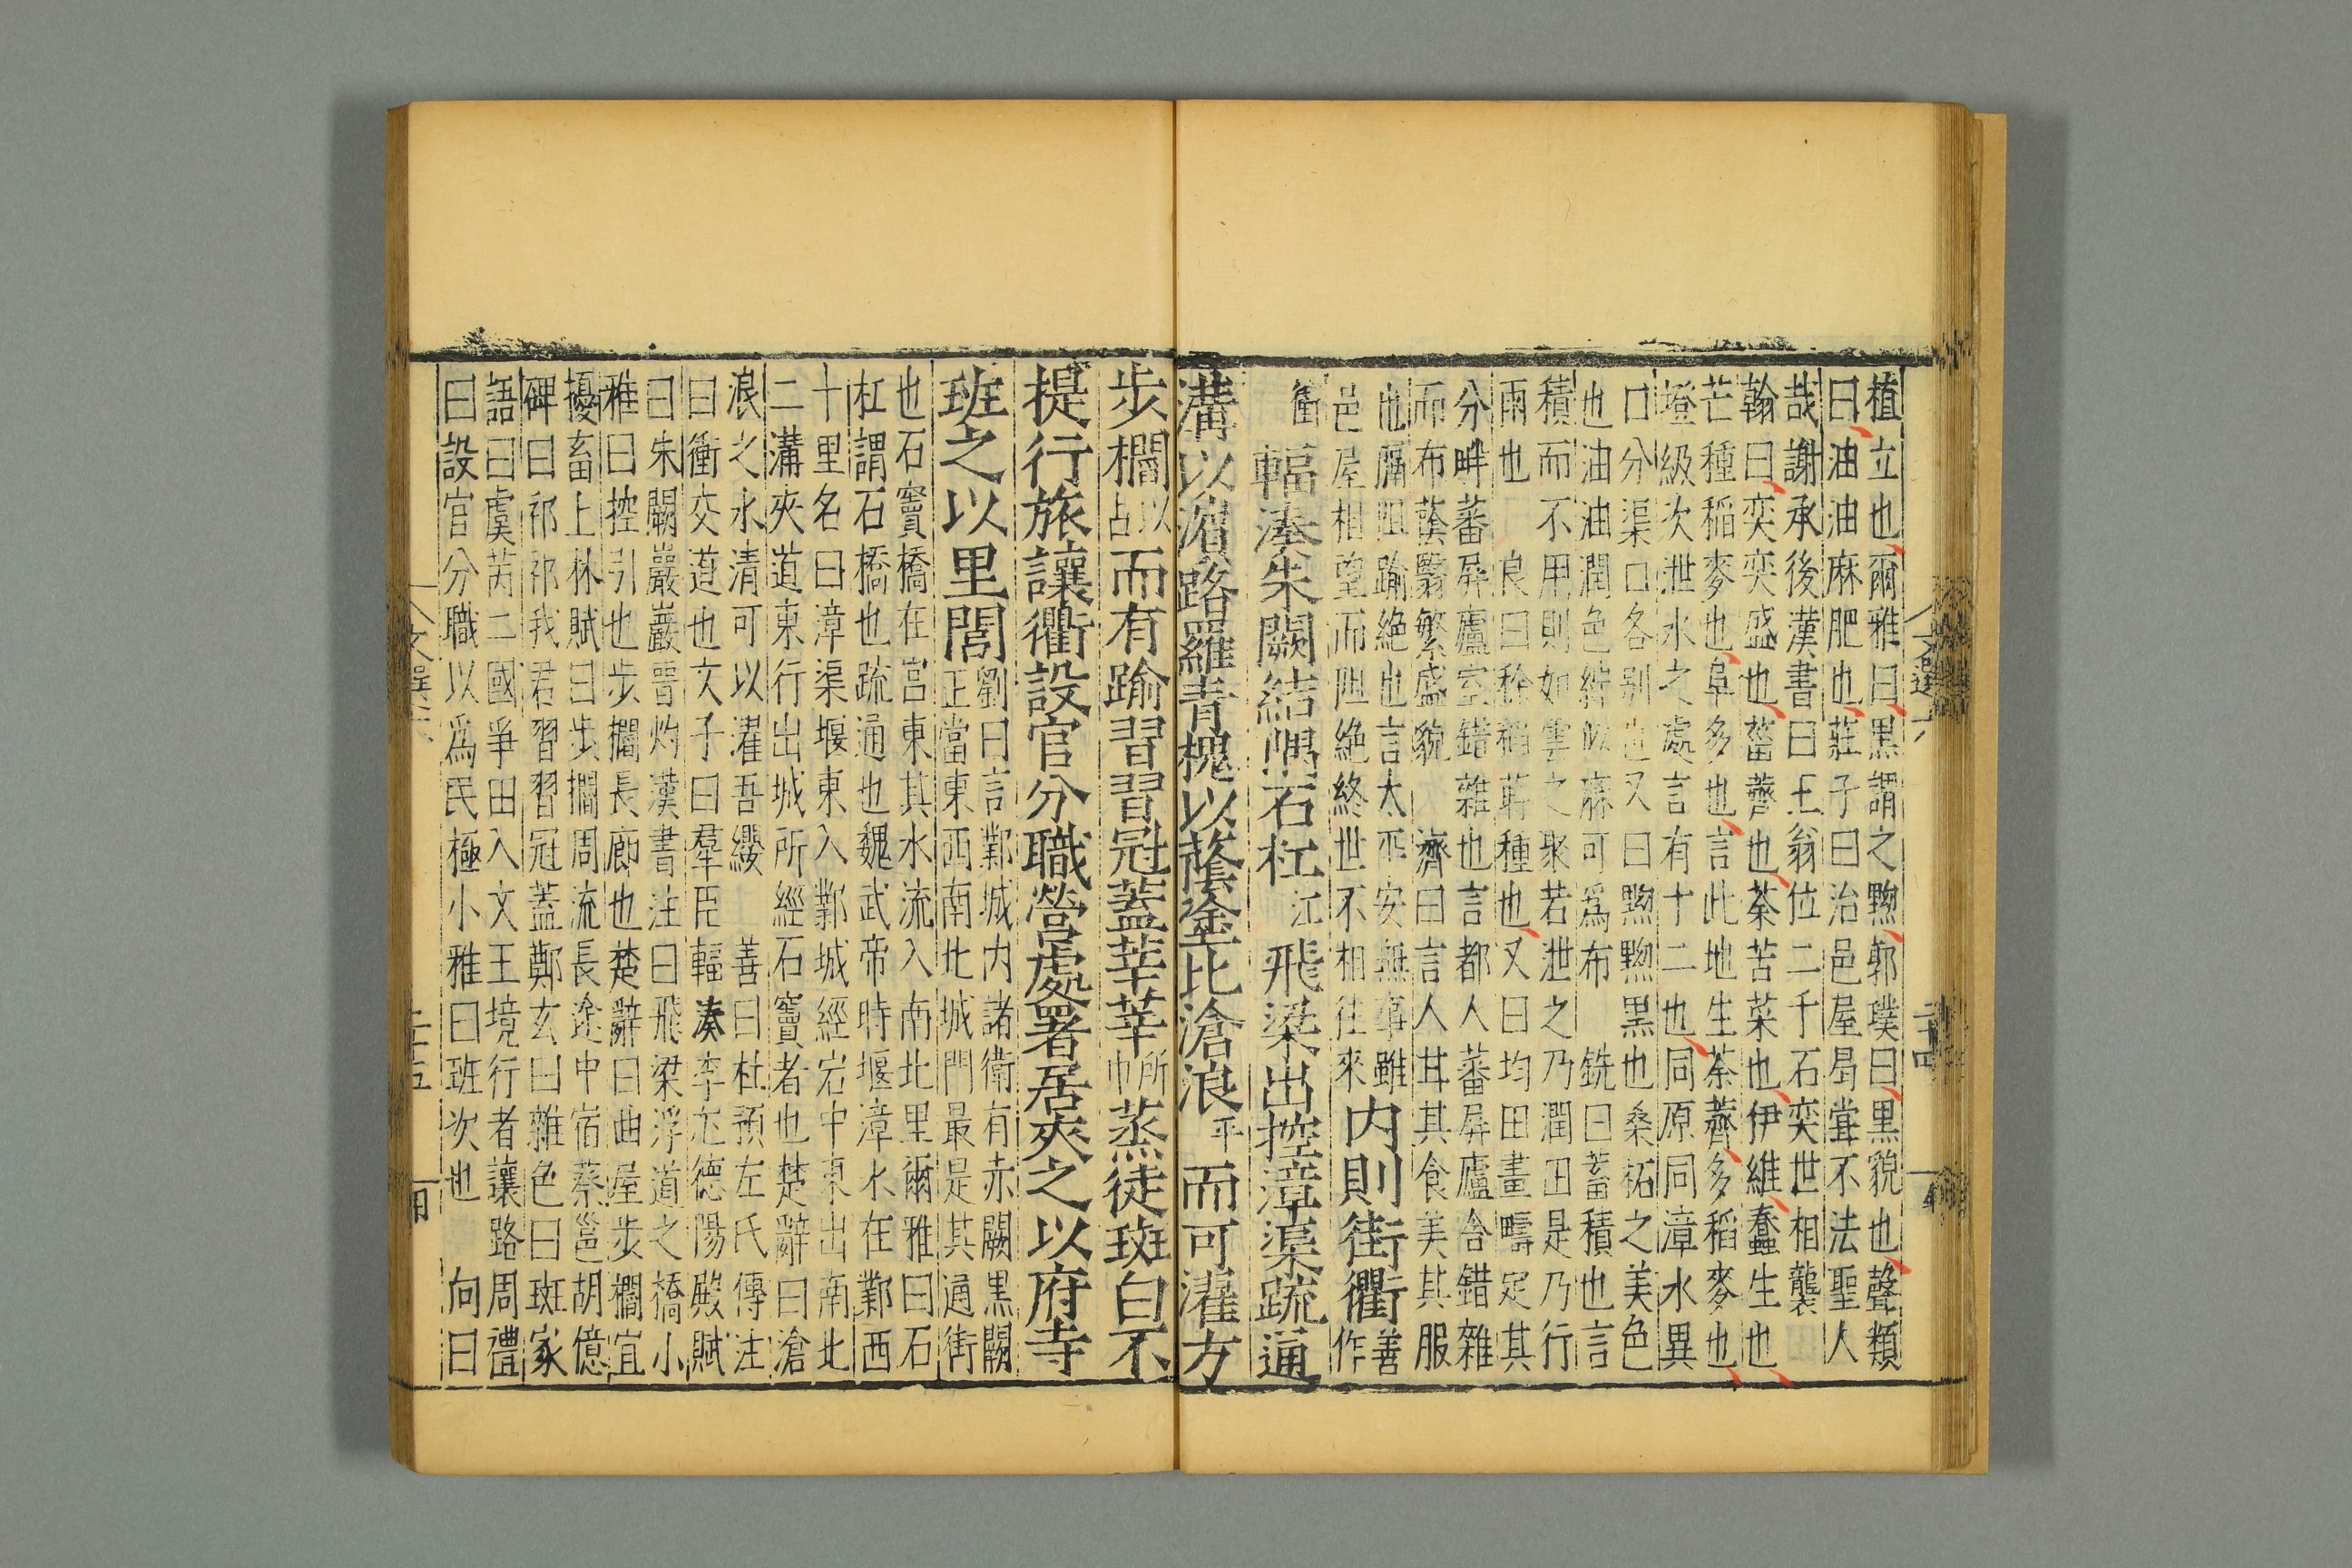 植立也爾雅曰黑謂之黝郭璞曰黑貌也聲類
曰油油麻肥也莊子曰治邑屋曷甞不法聖人
哉謝承後漢書曰王翁位二千石奕世相襲
翰曰奕奕盛也菑薺也荼苦菜也伊維蠢生也
芒種稻麥也阜多也言此地生荼薺多稻麥也
墱級次泄水之處言有十二也同原同漳水異
口分渠口各别也又曰黝黝黑也桑柘之美色
也油油潤色綷似麻可爲布　銑曰蓄積也言
積而不用則如雲之聚若泄之乃潤田是乃行
雨也　良曰稌稻蒔種也又曰均田畫疇定其
分畔蕃屏廬室錯雜也言都人蕃屏廬舍錯雜
而布蔭翳繁盛貌　濟曰言人甘其食美其服
也隔阻踰絶也言太平安無事雖
邑屋相望而阻絶終世不相往來
内則街衢
善
作
衝
輻湊朱闕結隅石杠
江
飛梁出控漳渠疏通
溝以濱路羅青槐以蔭塗比滄浪
平
而可濯方
步櫩
以
占
而有踰習習冠蓋莘莘
所
巾
蒸徒斑白不
提行旅讓衢設官分職營處署居夾之以府寺
班之以里閭
劉曰言鄴城内諸衛有赤闕黑闕
正當東西南北城門最是其通街
也石竇橋在宫東其水流入南北里爾雅曰石
杠謂石橋也疏通也魏武帝時堰漳水在鄴西
十里名曰漳渠堰東入鄴城經宕中東出南北
二溝夾道東行出城所經石竇者也楚辭曰滄
浪之水清可以濯吾纓　善曰杜預左氏傳注
曰衝交道也文子曰羣臣輻湊李尤德陽殿賦
曰朱闕巖巖晉灼漢書注曰飛梁浮道之橋小
雅曰控引也步櫩長廊也楚辭曰曲屋步櫩宜
擾畜上林賦曰步櫩周流長途中宿蔡邕胡億
碑曰祁祁我君習習冠蓋鄭玄曰雜色曰斑家
語曰虞芮二國爭田入文王境行者讓路周禮
曰設官分職以爲民極小雅曰班次也　向曰
文選六
二十四
文選六
二十五